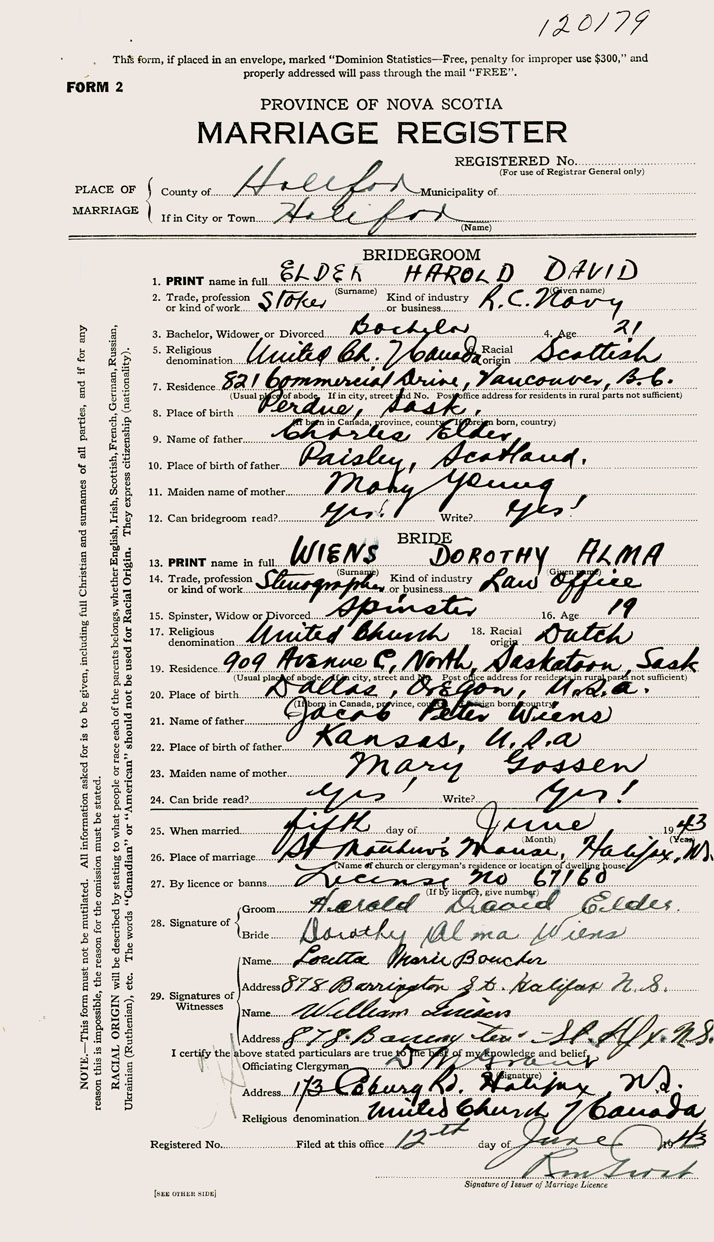 120179
This form, if placed in an envelope, marked "Dominion Statistics—Free, penalty for improper use $300," and
properly addressed will pass through the mail "FREE".
FORM 2
PROVINCE OF NOVA SCOTIA
MARRIAGE REGISTER
REGISTERED No.
(For use of Registrar General only)
PLACE OF MARRIAGE
County of Halifax Municipality of
If in City or Town Halifax
(Name)
BRIDEGROOM
1. PRINT name in full ELDER HAROLD DAVID
(Surname) (Given name)
2. Trade, profession or kind of work Stoker Kind of industry or business R.C. Navy
3. Bachelor, Widower or Divorced Bachelor 4. Age 21
5. Religious denomination United Ch. of Canada Racial origin Scottish
7. Residence 821 Commercial Drive, Vancouver, B.C.
(Usual place of abode. If in city, street and No. Post office address for residents in rural parts not sufficient)
8. Place of birth Perdue, Sask.
(If born in Canada, province, county. If foreign born, country)
9. Name of father Charles Elder
10. Place of birth of father Paisley, Scotland.
11. Maiden name of mother Mary Young
12. Can bridegroom read? Yes! Write? Yes!
BRIDE
13. PRINT name in full WIENS DOROTHY ALMA
(Surname) (Given name)
14. Trade, profession or kind of work Stenographer Kind of industry or business Law Office
15. Spinster, Widow or Divorced Spinster 16. Age 19
17. Religious denomination United Church 18. Racial origin Dutch
19. Residence 909 Avenue C, North, Saskatoon, Sask
(Usual place of abode. If in city, street and No. Post office address for residents in rural parts not sufficient)
20. Place of birth Dallas, Oregon, U.S.A.
(If born in Canada, province, county. If foreign born, country)
21. Name of father Jacob Peter Wiens
22. Place of birth of father Kansas, U.S.A
23. Maiden name of mother Mary Gossen
24. Can bride read? Yes! Write? Yes!
25. When married fifth day of June 1943
(Month) (Year)
26. Place of marriage St. Matthew's Manse, Halifax, N.S.
(Name of church or clergyman's residence or location of dwelling house)
27. By licence or banns License No 67160
(If by licence, give number)
28. Signature of
Groom Harold David Elder.
Bride Dorothy Alma Wiens
29. Signatures of Witnesses
Name Loretta Marie Boucher
Address 878 Barrington St. Halifax N.S.
Name William
Address 878 Barrington St. Hfx. N.S.
I certify the above stated particulars are true to the best of my knowledge and belief,
Officiating Clergyman
(Signature)
Address 173 Coburg Rd. Halifax N.S.
Religious denomination United Church of Canada
Registered No. Filed at this office 12th day of June 1943
Signature of Issuer of Marriage Licence
[SEE OTHER SIDE]
NOTE.—This form must not be mutilated. All information asked for is to be given, including full Christian and surnames of all parties, and if for any
reason this is impossible, the reason for the omission must be stated.
RACIAL ORIGIN will be described by stating to what people or race each of the parents belongs, whether English, Irish, Scottish, French, German, Russian,
Ukrainian (Ruthenian), etc. The words "Canadian" or "American" should not be used for Racial Origin. They express citizenship (nationality).